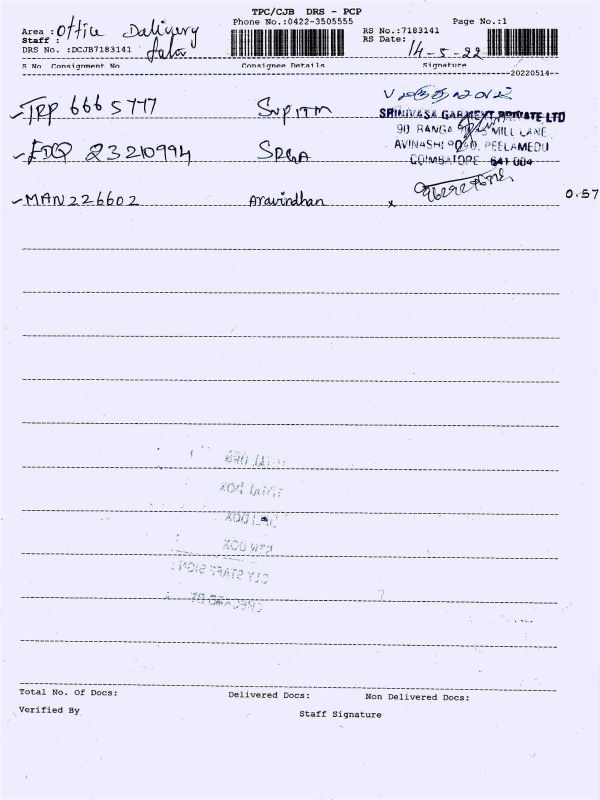 TPC/CJB DRS - PCP
Phone No.:0422-3505555
Page No.:1
Area : Office Delivery
Staff :
DRS No. :DCJB7183141
RS No.:7183141
RS Date: 14-5-22
S No Consignment No Consignee Details Signature
20220514
TRP 6665777
SRINIVASA GARMENT PRIVATE LTD
90 RANGA MILL LANE
AVINASHI ROAD, PEELAMEDU
COIMBATORE 641 004
EDQ 23210994
MAN 226602 Aravindhan x
0.57
TOTAL DRS
TOTAL DOX
DOX
DOX
DLY STAFF SIGN :
CHECKED BY
Total No. Of Docs: Delivered Docs: Non Delivered Docs:
Verified By Staff Signature